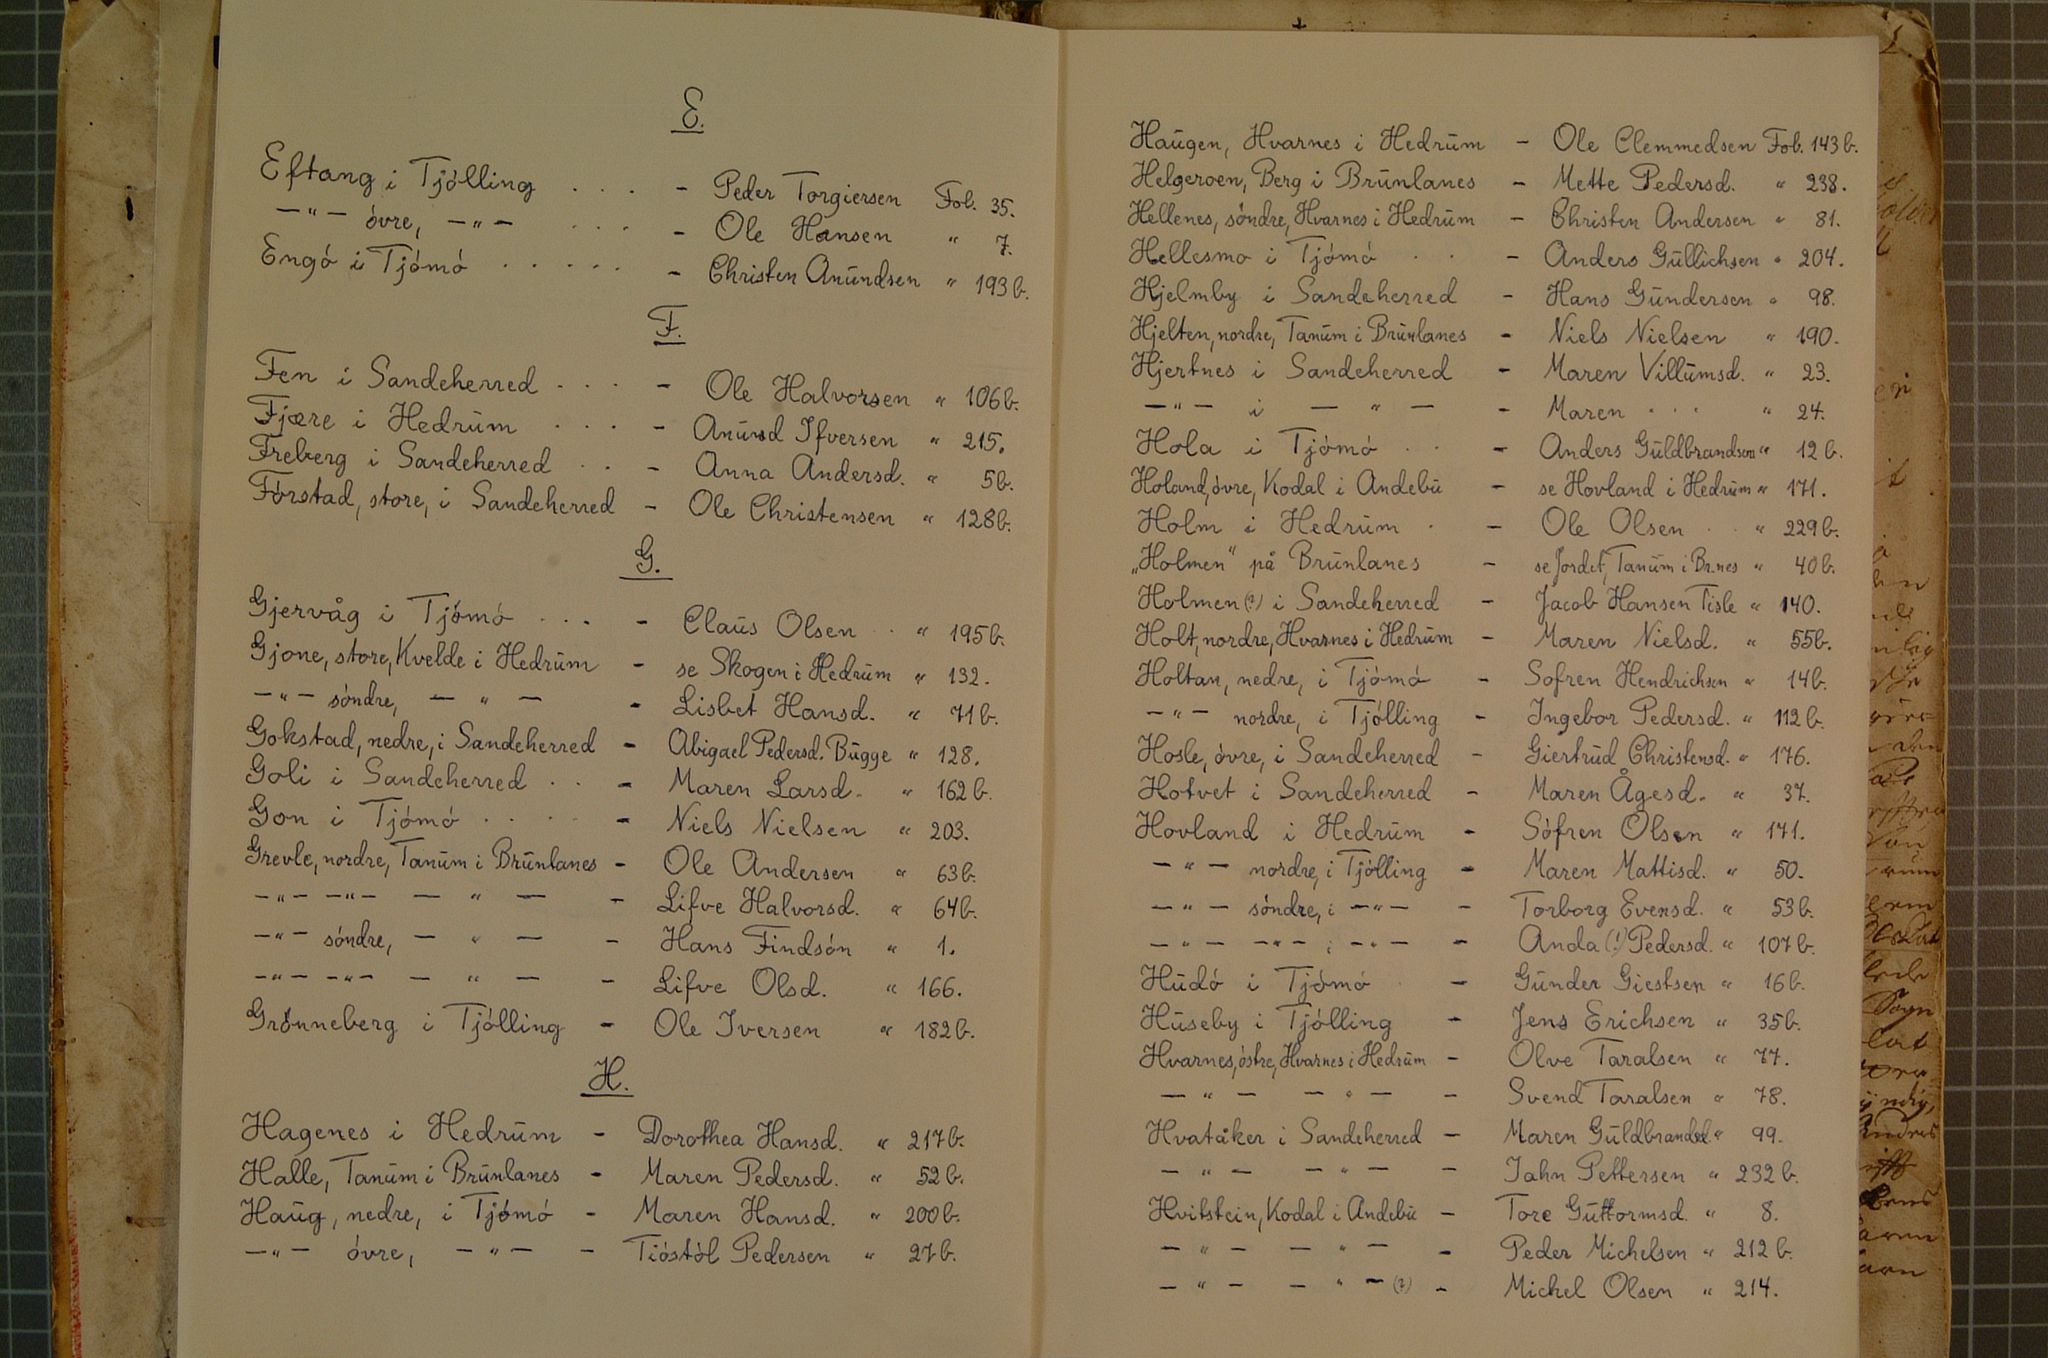 E.
Eftang i Tjölling . . . . - Peder Torgiersen Fol. 35.
-"- övre, -"- . . . - Ole Hansen " 7.
Engö i Tjömö . . . . . - Christen Anundsen " 193 b.
F.
Fen i Sandeherred . . . - Ole Halvorsen " 106 b.
Fjære i Hedrum . . . - Anund Ifversen " 215.
Freberg i Sandeherred . . - Anna Andersd. " 5 b.
Förstad, store, i Sandeherred - Ole Christensen " 128 b.
G.
Gjervåg i Tjömö . . . - Claus Olsen . " 195 b.
Gjone, store, Kvelde i Hedrum - se Skogen i Hedrum " 132.
-"- söndre, - " - - Lisbet Hansd. " 71 b.
Gokstad, nedre, i Sandeherred - Abigael Pedersd. Bugge " 128.
Goli i Sandeherred . . - Maren Larsd. " 162 b.
Gon i Tjömö . . . . - Niels Nielsen " 203.
Grevle, nordre, Tanum i Brunlanes - Ole Andersen " 63 b.
-"- -"- - " - - Lifve Halvorsd. " 64 b.
-"- söndre, - " - - Hans Findsön " 1.
-"- -"- - " - - Lifve Olsd. " 166.
Grönneberg i Tjölling - Ole Iversen " 182 b.
H.
Hagenes i Hedrum - Dorothea Hansd. " 217 b.
Halle, Tanum i Brunlanes - Maren Pedersd. " 52 b.
Haug, nedre, i Tjömö - Maren Hansd. " 200 b.
-"- övre, -"- - Tiöstöl Pedersen " 27 b.
Haugen, Hvarnes i Hedrum - Ole Clemmedsen Fol. 143 b.
Helgeroen, Berg i Brunlanes - Mette Pedersd. " 238.
Hellenes, söndre, Hvarnes i Hedrum - Christen Andersen " 81.
Hellesmo i Tjömö . . - Anders Gullichsen " 204.
Hjelmby i Sandeherred - Hans Gundersen " 98.
Hjelten, nordre, Tanum i Brunlanes - Niels Nielsen " 190.
Hjertnes i Sandeherred - Maren Villumsd. " 23.
-"- i - " - - Maren . . . " 24.
Hola i Tjömö . . - Anders Guldbrandsen " 12 b.
Holand, övre, Kodal i Andebu - se Hovland i Hedrum " 171.
Holm i Hedrum . - Ole Olsen . . " 229 b.
„Holmen" på Brunlanes - se Jordet, Tanum i Br.nes " 40 b.
Holmen (?) i Sandeherred - Jacob Hansen Tisle " 140.
Holt, nordre, Hvarnes i Hedrum - Maren Nielsd. " 55 b.
Holtan, nedre, i Tjömö - Sofren Hendrichsen " 14 b.
-"- nordre, i Tjölling - Ingebor Pedersd. " 112 b.
Hosle, övre, i Sandeherred - Giertrud Christensd. " 176.
Hotvet i Sandeherred - Maren Ågesd. " 37.
Hovland i Hedrum - Söfren Olsen " 171.
-"- nordre, i Tjölling - Maren Mattisd. " 50.
-"- söndre, i -"- - Torborg Evensd. " 53 b.
-"- -"- i -"- - Anda (!) Pedersd. " 107 b.
Hudö i Tjömö . - Gunder Giestsen " 16 b.
Huseby i Tjölling - Jens Erichsen " 35 b.
Hvarnes, östre, Hvarnes i Hedrum - Olve Taralsen " 77.
- " - - " - - Svend Taralsen " 78.
Hvatåker i Sandeherred - Maren Guldbrandsd. " 99.
- " - - " - - Jahn Pettersen " 232 b.
Hvitstein, Kodal i Andebu - Tore Guttormsd. " 8.
- " - - " - - Peder Michelsen " 212 b.
- " - - " - (?) - Michel Olsen " 214.